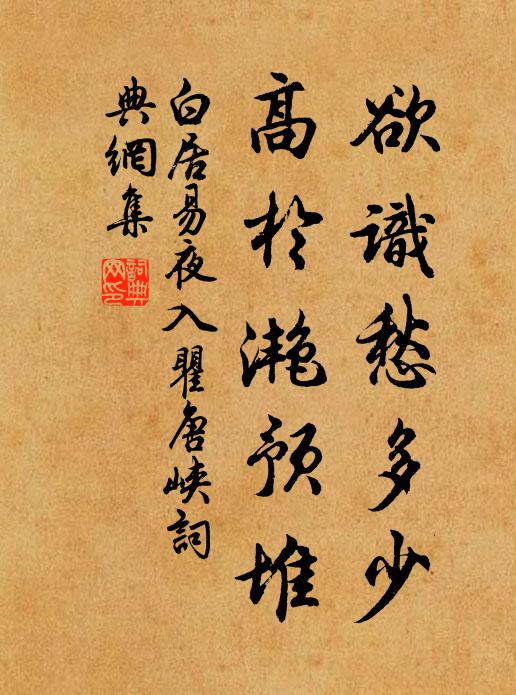 欲識愁多少
高於灧預堆
白居易夜入瞿唐峽詞
典網集
詞典網印